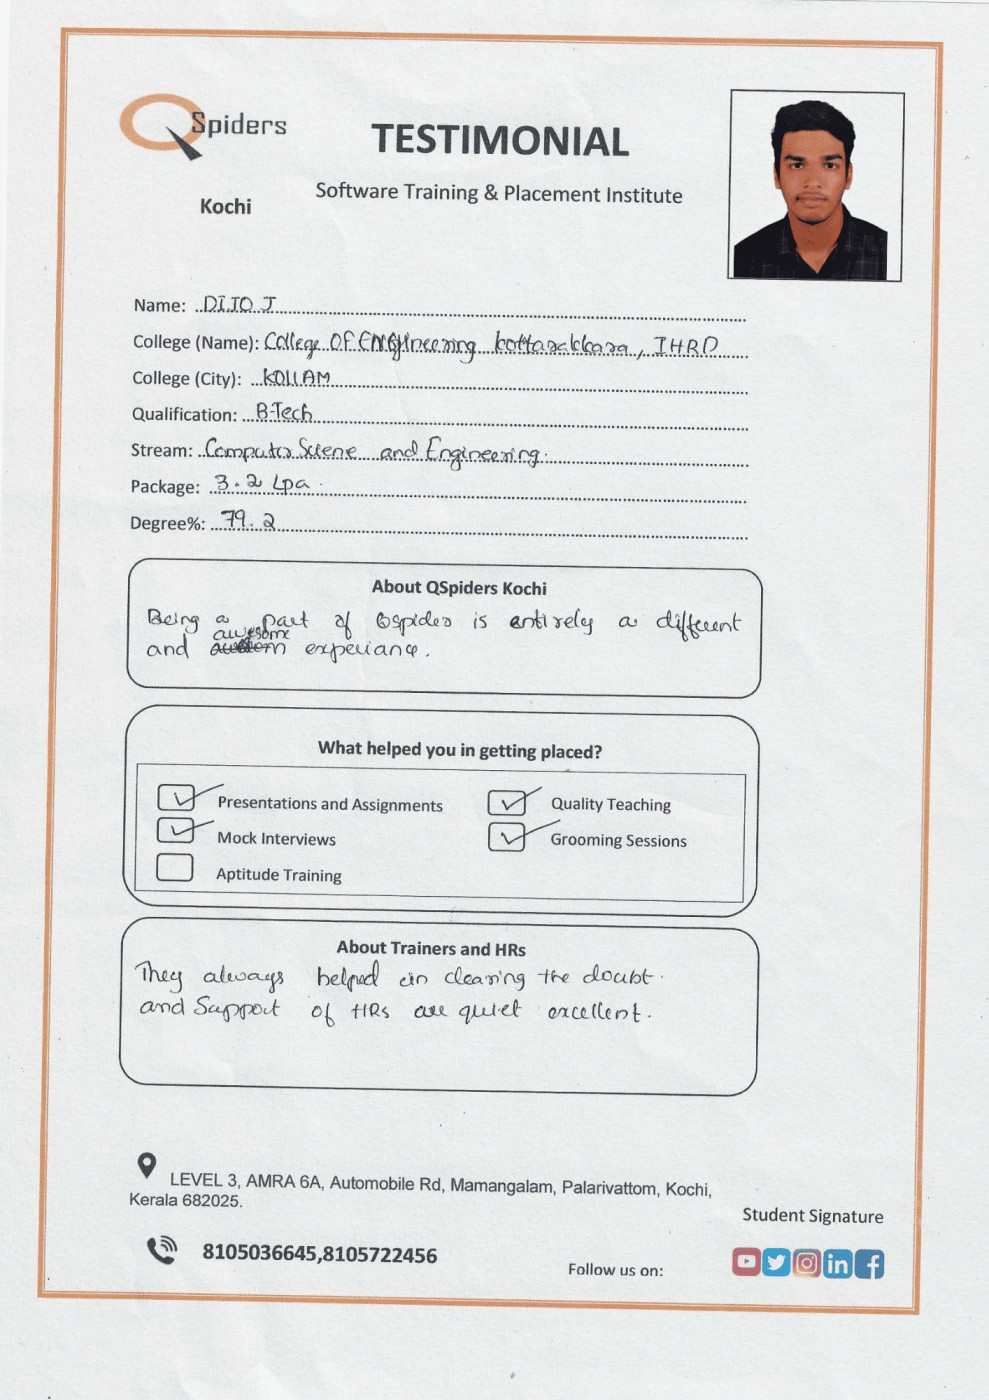 QSpiders
TESTIMONIAL
Software Training & Placement Institute
Kochi
Name: DIJO J
College (Name): College OF ENGIneering kottarakkara, IHRD
College (City): KOLLAM
Qualification: B-Tech
Stream: Computer Sciene and Engineering.
Package: 3.2 Lpa.
Degree%: 79.2
About QSpiders Kochi
Being a part of Qspider is entirely a different
awesome
and experiance.
What helped you in getting placed?
Presentations and Assignments
Quality Teaching
Mock Interviews
Grooming Sessions
Aptitude Training
About Trainers and HRs
They always helped in clearing the doubt.
and Support of HRs are quiet excellent.
LEVEL 3, AMRA 6A, Automobile Rd, Mamangalam, Palarivattom, Kochi,
Kerala 682025.
Student Signature
8105036645,8105722456
Follow us on: